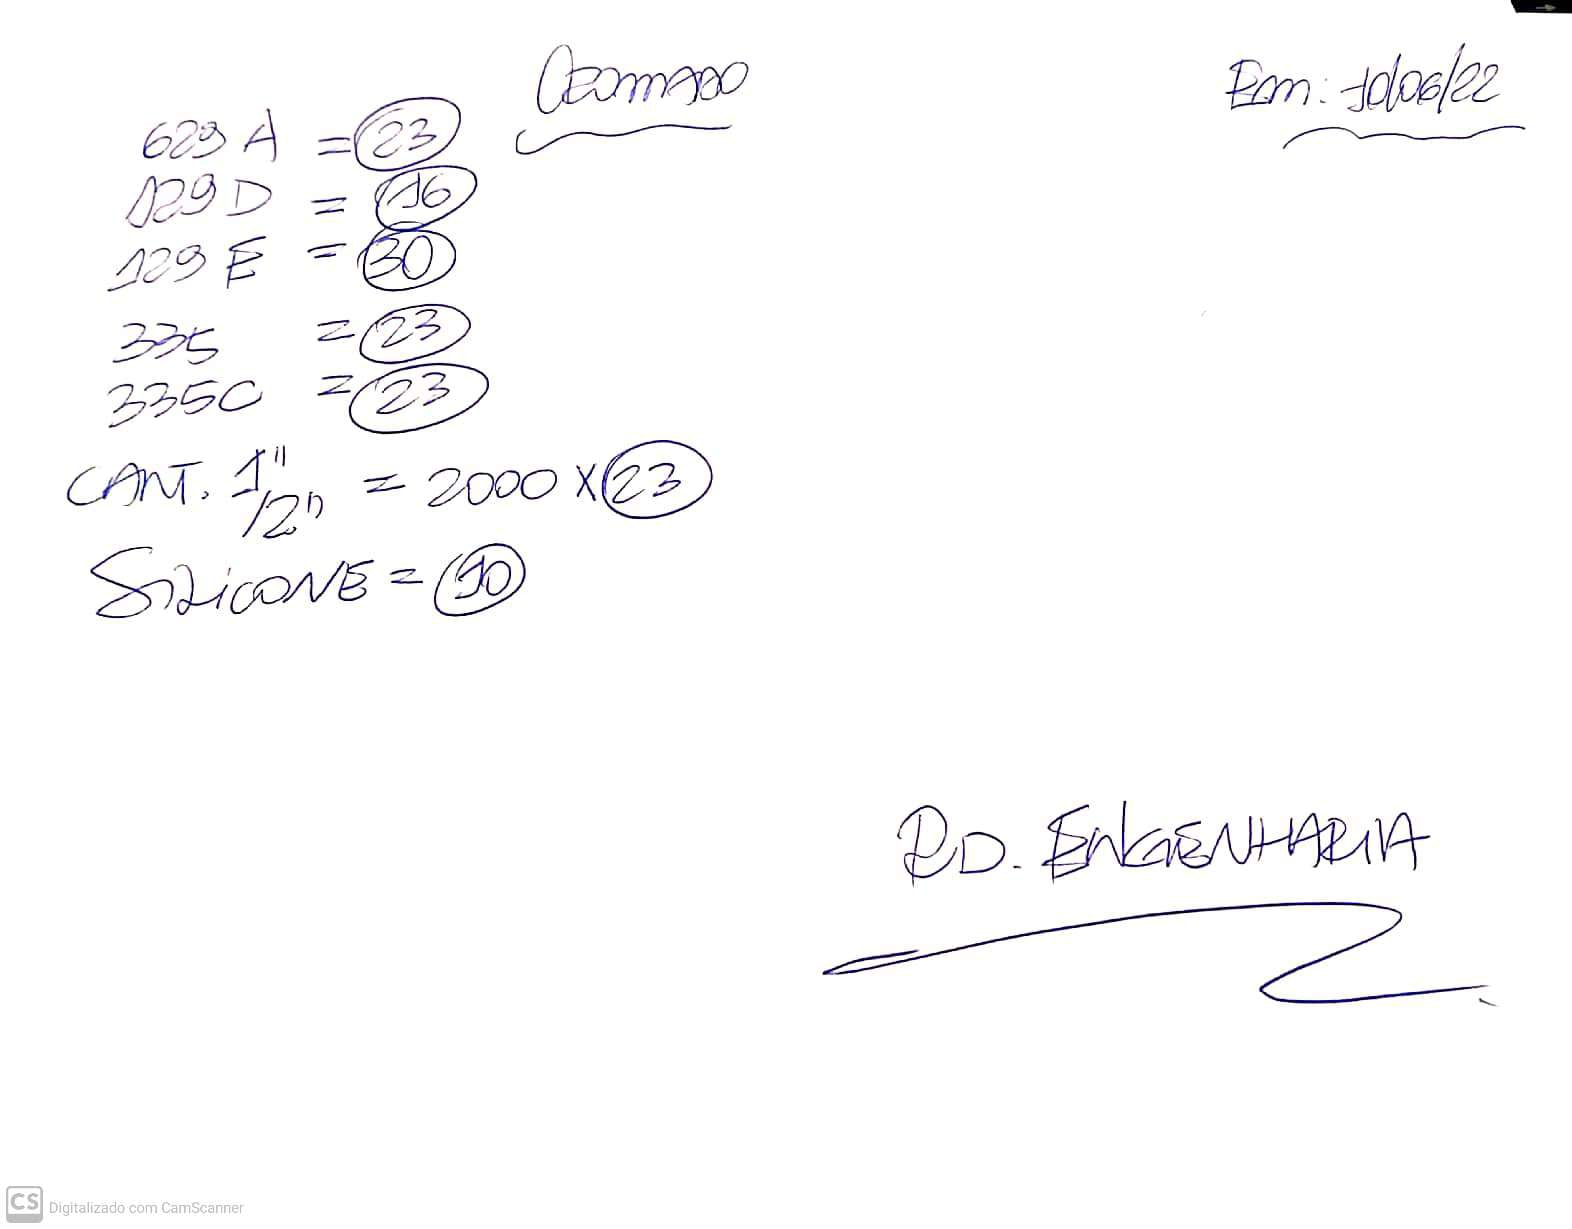 Cromado
Em: 10/06/22
629 A = 23
129 D = 16
129 E = 30
335 = 23
335C = 23
CANT. 1"
/2" = 2000 X 23
SiLiCONE = 10
RD. ENGENHARIA
CS Digitalizado com CamScanner